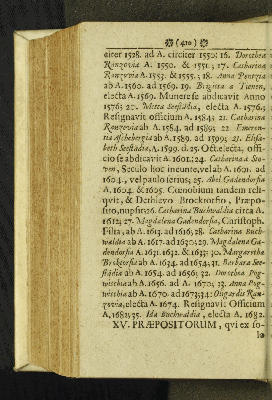 (410)
citer 1528. ad A. circiter 1550; 16. Dorothea
Ranzovia A. 1550. & 1551; 17. Catharina
Ranzovia A. 1553. & 1555; 18. Anna Pentzia
ab A. 1560. ad 1569. 19. Birgitta a Tienen,
electa A. 1569. Munere se abdicavit Anno
1576; 20. Metta Seestädia, electa A. 1576;
Resignavit officium A. 1584; 21. Catharina
Ranzovia ab A. 1584. ad 1589; 22. Emeren-
tia Aschebergia ab A. 1589. ad 1599; 23. Elisa-
beth Seestädia, A. 1599. d. 25. Oct. electa, offi-
cio se abdicavit A. 1601. 24. Catharina a Sto-
ven, Seculo hoc ineunte, vel ab A. 1601. ad
1604. vel paulo serius; 25. Abel Gadendorfia
A. 1604. & 1605. Cœnobium tandem reli-
qvit, & Dethlevo Brocktorfio, Præpo-
sito, nupsit: 26. Catharina Buchwaldia circa A.
1612; 27. Magdalena Gadendorfia, Christoph.
Filia, ab A. 1613. ad 1616; 28. Catharina Buch-
waldia ab A. 1617. ad 1630; 29. Magdalena Ga-
dendorfia A. 1631. 1632. & 1633; 30. Margaretha
Brocktorfia ab A. 1634. ad 1654; 31. Barbara See-
städia ab A. 1654. ad 1656; 32. Dorothea Pog-
wischia ab A. 1656. ad A. 1670; 33. Anna Pog-
wischia ab A. 1670. ad 1673; 34: Oligardis Ran-
zovia, electa A. 1674. Resignavit Officium
A. 1682; 35. Ida Buchwaldia, electa A. 1682.
XV. PRÆPOSITORUM, qvi ex so-
lo